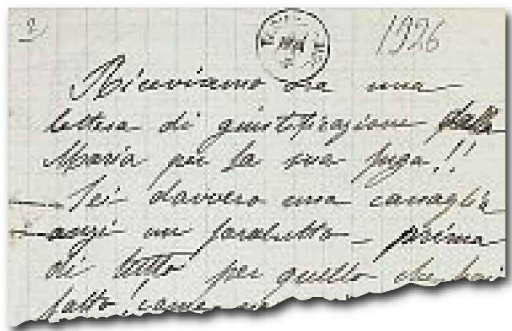 2
1926
Riceviamo ora una
lettera di giustificazione dalla
Maria per la sua fuga!!
Sei davvero una canaglia
anzi un farabutto - prima
di tutto per quello che hai
fatto, come